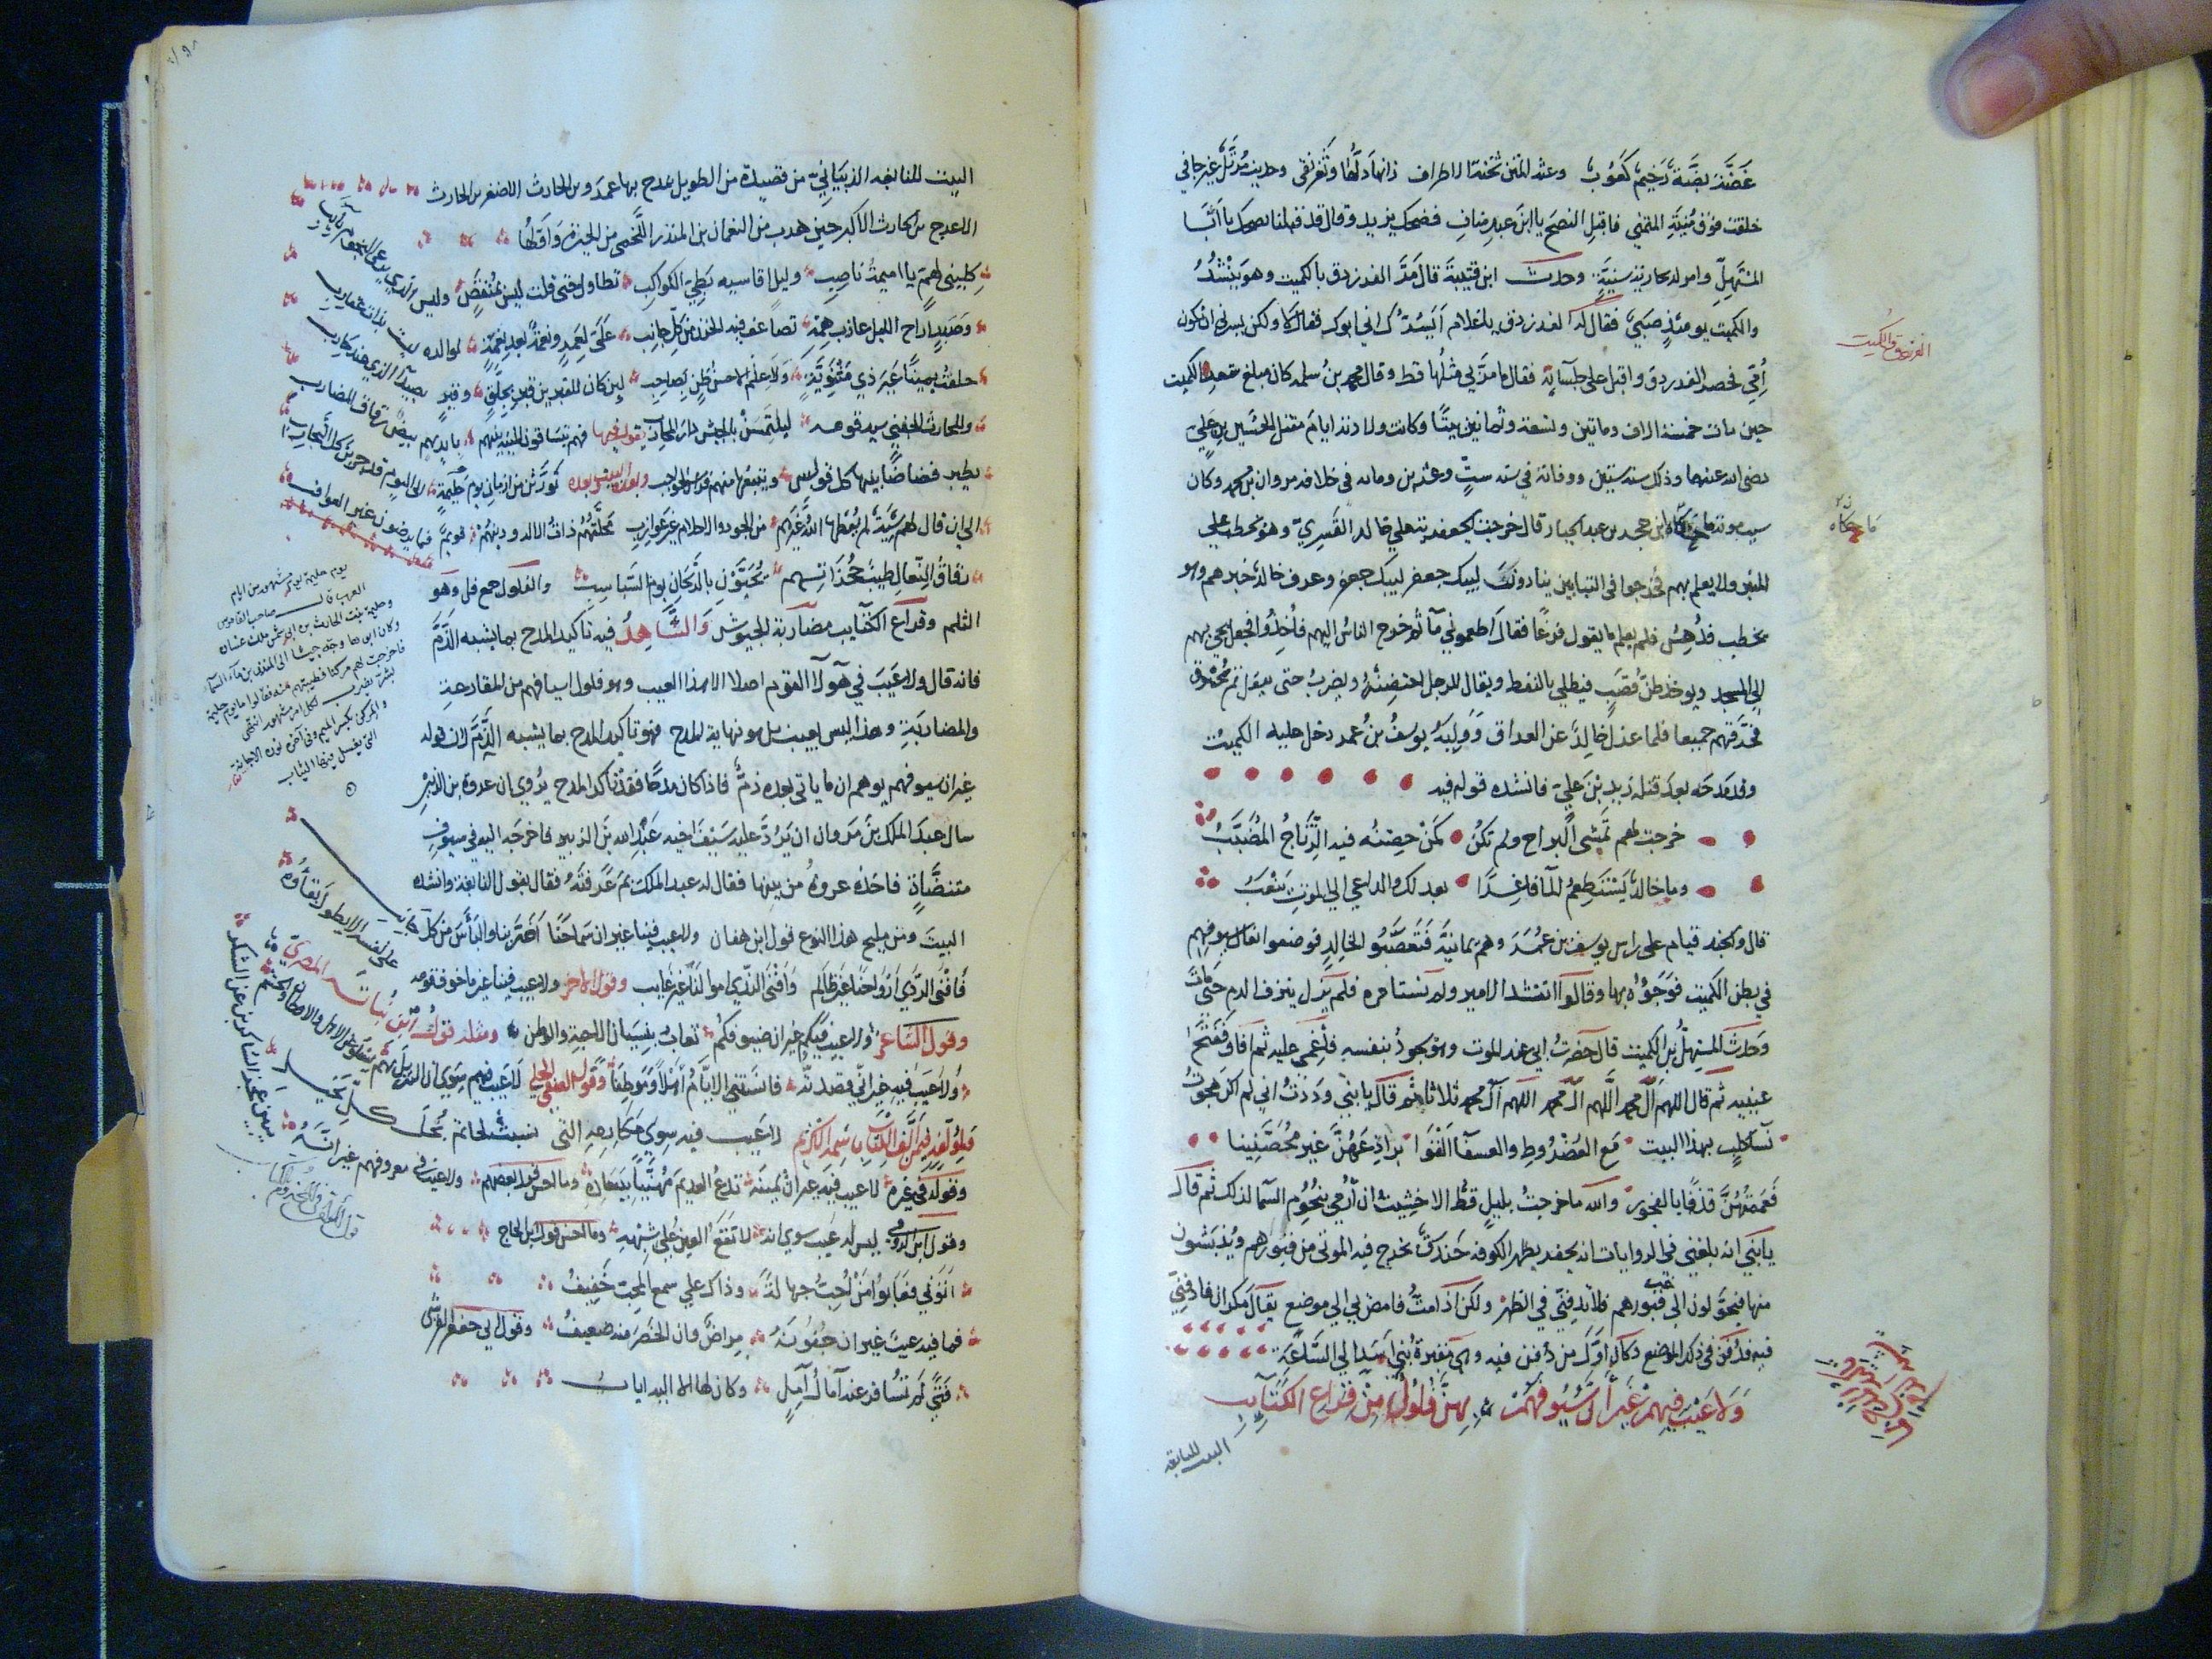 غضة بضة رخيم لعوب وعثة المتن شختة الاطراف زانها دلها وثغر نقي وحديث مرتل غير جافي
خلقت فوق منية المتمني فاقبل النصح يا ابن عبد مناف فضحك يزيد وقال قد قبلنا نصحك يا ابا
المستهل وامر له بجارية سنية وحدث ابن قتيبة قال مر الفرزدق بالكميت وهو ينشد
والكميت يومئذ صبي فقال له الفرزدق يا غلام ايسرك اني ابوك فقال لا ولكن يسرني ان تكون
امي فحصر الفرزدق واقبل على جلسائه فقال ما مر بي مثلها قط وقال محمد بن سلمه كان مبلغ شعر الكميت
حين مات خمسة الاف ومأتين وتسعة وثمانين بيتا وكانت ولادته ايام مقتل الحسين بن علي
رضى الله عنهما وذلك سنة ستين ووفاته في سنه ست وعشرين ومائه في خلافة مروان بن محمد وكان
سبب موته ما حكاه ابن حجر بن عبد الجبار قال خرجت الجعفرية على خالد القسري وهو يخطب على
المنبر ولا يعلم بهم فخرجوا في التبابين ينادون لبيك جعفر لبيك جعفر وعرف خالد خبرهم وهو
يخطب فدهش فلم يعلم ما يقول فزعا فقال اطعموني مآ ثم خرج الناس اليهم فأخذوا فجعل يجي بهم
الي المسجد ويوخذ طن قصب فيطلي بالنفط ويقال للرجل احتضنه ويضرب حتى يفعل ثم يحرق
فحرقهم جميعا فلما عزل خالد عن العراق ووليه يوسف بن عمر دخل عليه الكميت
وقد مدحه بعد قتله زيد بن علي فانشده قوله فيه
خرجت لهم تمشي البراح ولم تكن كمن حصنه فيه الرتاج المضبب
وما خالد يستطعم المآ فاغرا بعدلك والداعي الي الموت ينعب
قال والجند قيام على راس يوسف بن عمر وهم يمانية فتعصبوا لخالد فوضعوا نعال سيوفهم
في بطن الكميت فوجؤه بها وقالوا اتنشد الامير ولم تستامره فلم يزل ينزف الدم حتى مات
وحدث المستهل بن الكميت قال حضرت ابي عند الموت وهو يجود بنفسه فأغمي عليه ثم افاق ففتح
عينيه ثم قال اللهم آل محمد اللهم آل محمد اللهم آل محمد ثلاثا ثم قال يا بني وددت اني لم اكن هجوت
نسآ كلب بهذا البيت مع العضروط والعسفآ القوا براذعهن غير محصنينا
فعممتهن قذفا بالفجور والله ما خرجت بليل قط الا خشيت ان أرمي بنجوم السما لذلك ثم قال
يا بني انه بلغني في الروايات انه يحفر بظهر الكوفه خندق يخرج فيه الموتى من قبورهم وينبشون
منها فيحولون الى غير قبورهم فلا تدفني في الظهر ولكن اذا مت فامض بي الي موضع يقال له مكران فادفني
فيه فدفن في ذلك الموضع وكان اول من دفن فيه وهي مقبرة بني اسد الي الساعة
ولا عيب فيهم غير ان سيوفهم بهن فلول من قراع الكتآئب
البيت للنابغه
الفرزدق والكميت
ما حكاه
البيت للنابغه الذبياني من قصيدة من الطويل يمدح بها عمرو بن الحارث الاصغر بن الحارث
الاعرج بن الحارث الاكبر حين هرب من النعمان بن المنذر اللخمى من الحيرة واولها
كليني لهم يا اميمة ناصب وليل اقاسيه بطي الكواكب تطاول حتى قلت ليس بمنقض وليس الذي يرعى النجوم بآيب
وصدر اراح الليل عازب همه تضاعف فيه الحزن من كل جانب على لعمرو نعمة بعد نعمة لوالده ليست بذات عقارب
حلفت يمينا غير ذي مثنوية ولا علم الا حسن ظن بصاحب لئن كان للقبرين قبر بجلق وقبر بصيدآ الذي عند حارب
وللحارث الجفني سيد قومه ليلتمسن بالجيش دار المحارب يقول فيها فهم يتساقون المنية بينهم بايديهم بيض رقاق المضارب
يطير فضاضا بينها كل قونس ويتبعها منهم فراش الحواجب وبعد البيت وبعده تورثن من ازمان يوم حليمة الى اليوم قد جربن كل التجارب
الي ان قال لهم شيمة لم يعطها الله غيرهم من الجود والاحلام غير عوازب محلتهم ذات الاله ودينهم قويم فما يرجون غير العواقب
رقاق النعال طيب حجزاتهم يحيون بالريحان يوم السباسب والفلول جمع فل وهو
الثلم وقراع الكتآيب مضاربة الجيوش والشاهد فيه تاكيد المدح بما يشبه الذم
فانه قال ولا عيب في هولآ القوم اصلا الا هذا العيب وهو فلول اسيافهم من المقارعة
والمضاربة وهذا ليس بعيب بل هو نهاية المدح فهو تاكيد المدح بما يشبه الذم لان قوله
غير ان سيوفهم يوهم ان ما ياتى بعده ذم فاذا كان مدحا فقد تاكد المدح يروي ان عروة بن الزبير
سال عبد الملك بن مروان ان يرد عليه سيف اخيه عبد الله بن الزبير فاخرجه اليه في سيوف
منتضاة فاخذه عروة من بينها فقال له عبد الملك بم عرفته فقال بقول النابغة وانشده
البيت ومن مليح هذا النوع قول ابن هفان ولا عيب فينا غير ان سماحنا اضر بنا والبأس من كل جانب
فأفنى الردي ارواحنا غير ظالم وافنى الندي اموالنا غير عايب وقول الاخر ولا عيب فينا غير
وقول الشاعر ولا عيب فيكم غير ان ضيوفكم تعاب بنسيان الاحبة والوطن ومثله قول ابن نباتة المصري
ولا عيب فيه غير اني قصدته فانستني الايام أهلا وموطنا وقول الصفي الحلي لا عيب فيهم سوي ان النزيل بهم يسلو عن الاهل والاوطان والحشم
لا عيب فيه سوي مكارمه التى نسبت لحاتم بخل كل بخيل
وقوله في غيره لا عيب فيه غير ان يمينه تدع العديم
وقول ابن الرومي ليس له عيب سوي انه لا تقع العين على شبهه وما احسن قول ابن الحاج
اتوني فعابوا من أحب جمالة وذاك علي سمع المحب خفيف
فما فيه عيب غير ان جفونه مراض وان الخصر منه ضعيف وقول ابي جعفر القرشي
فتى لم تسافر عنه آمال آمل وكان لها الا اليه اياب
يوم حليمة يوم مشهور من ايام
العرب قال صاحب القاموس
وحليمة بنت الحارث بن ابي شمر ملك غسان
وكان ابوها وجه جيشا الى المنذر بن مآء السمآء
فاخرجت لهم مركنا فطيبتهم منه فقالوا ما يوم حليمة
بسر يضرب لكل امر مشهور انتهى
والمركن بكسر الميم وفي آخره نون الاجانة
التى يغسل فيها الثياب